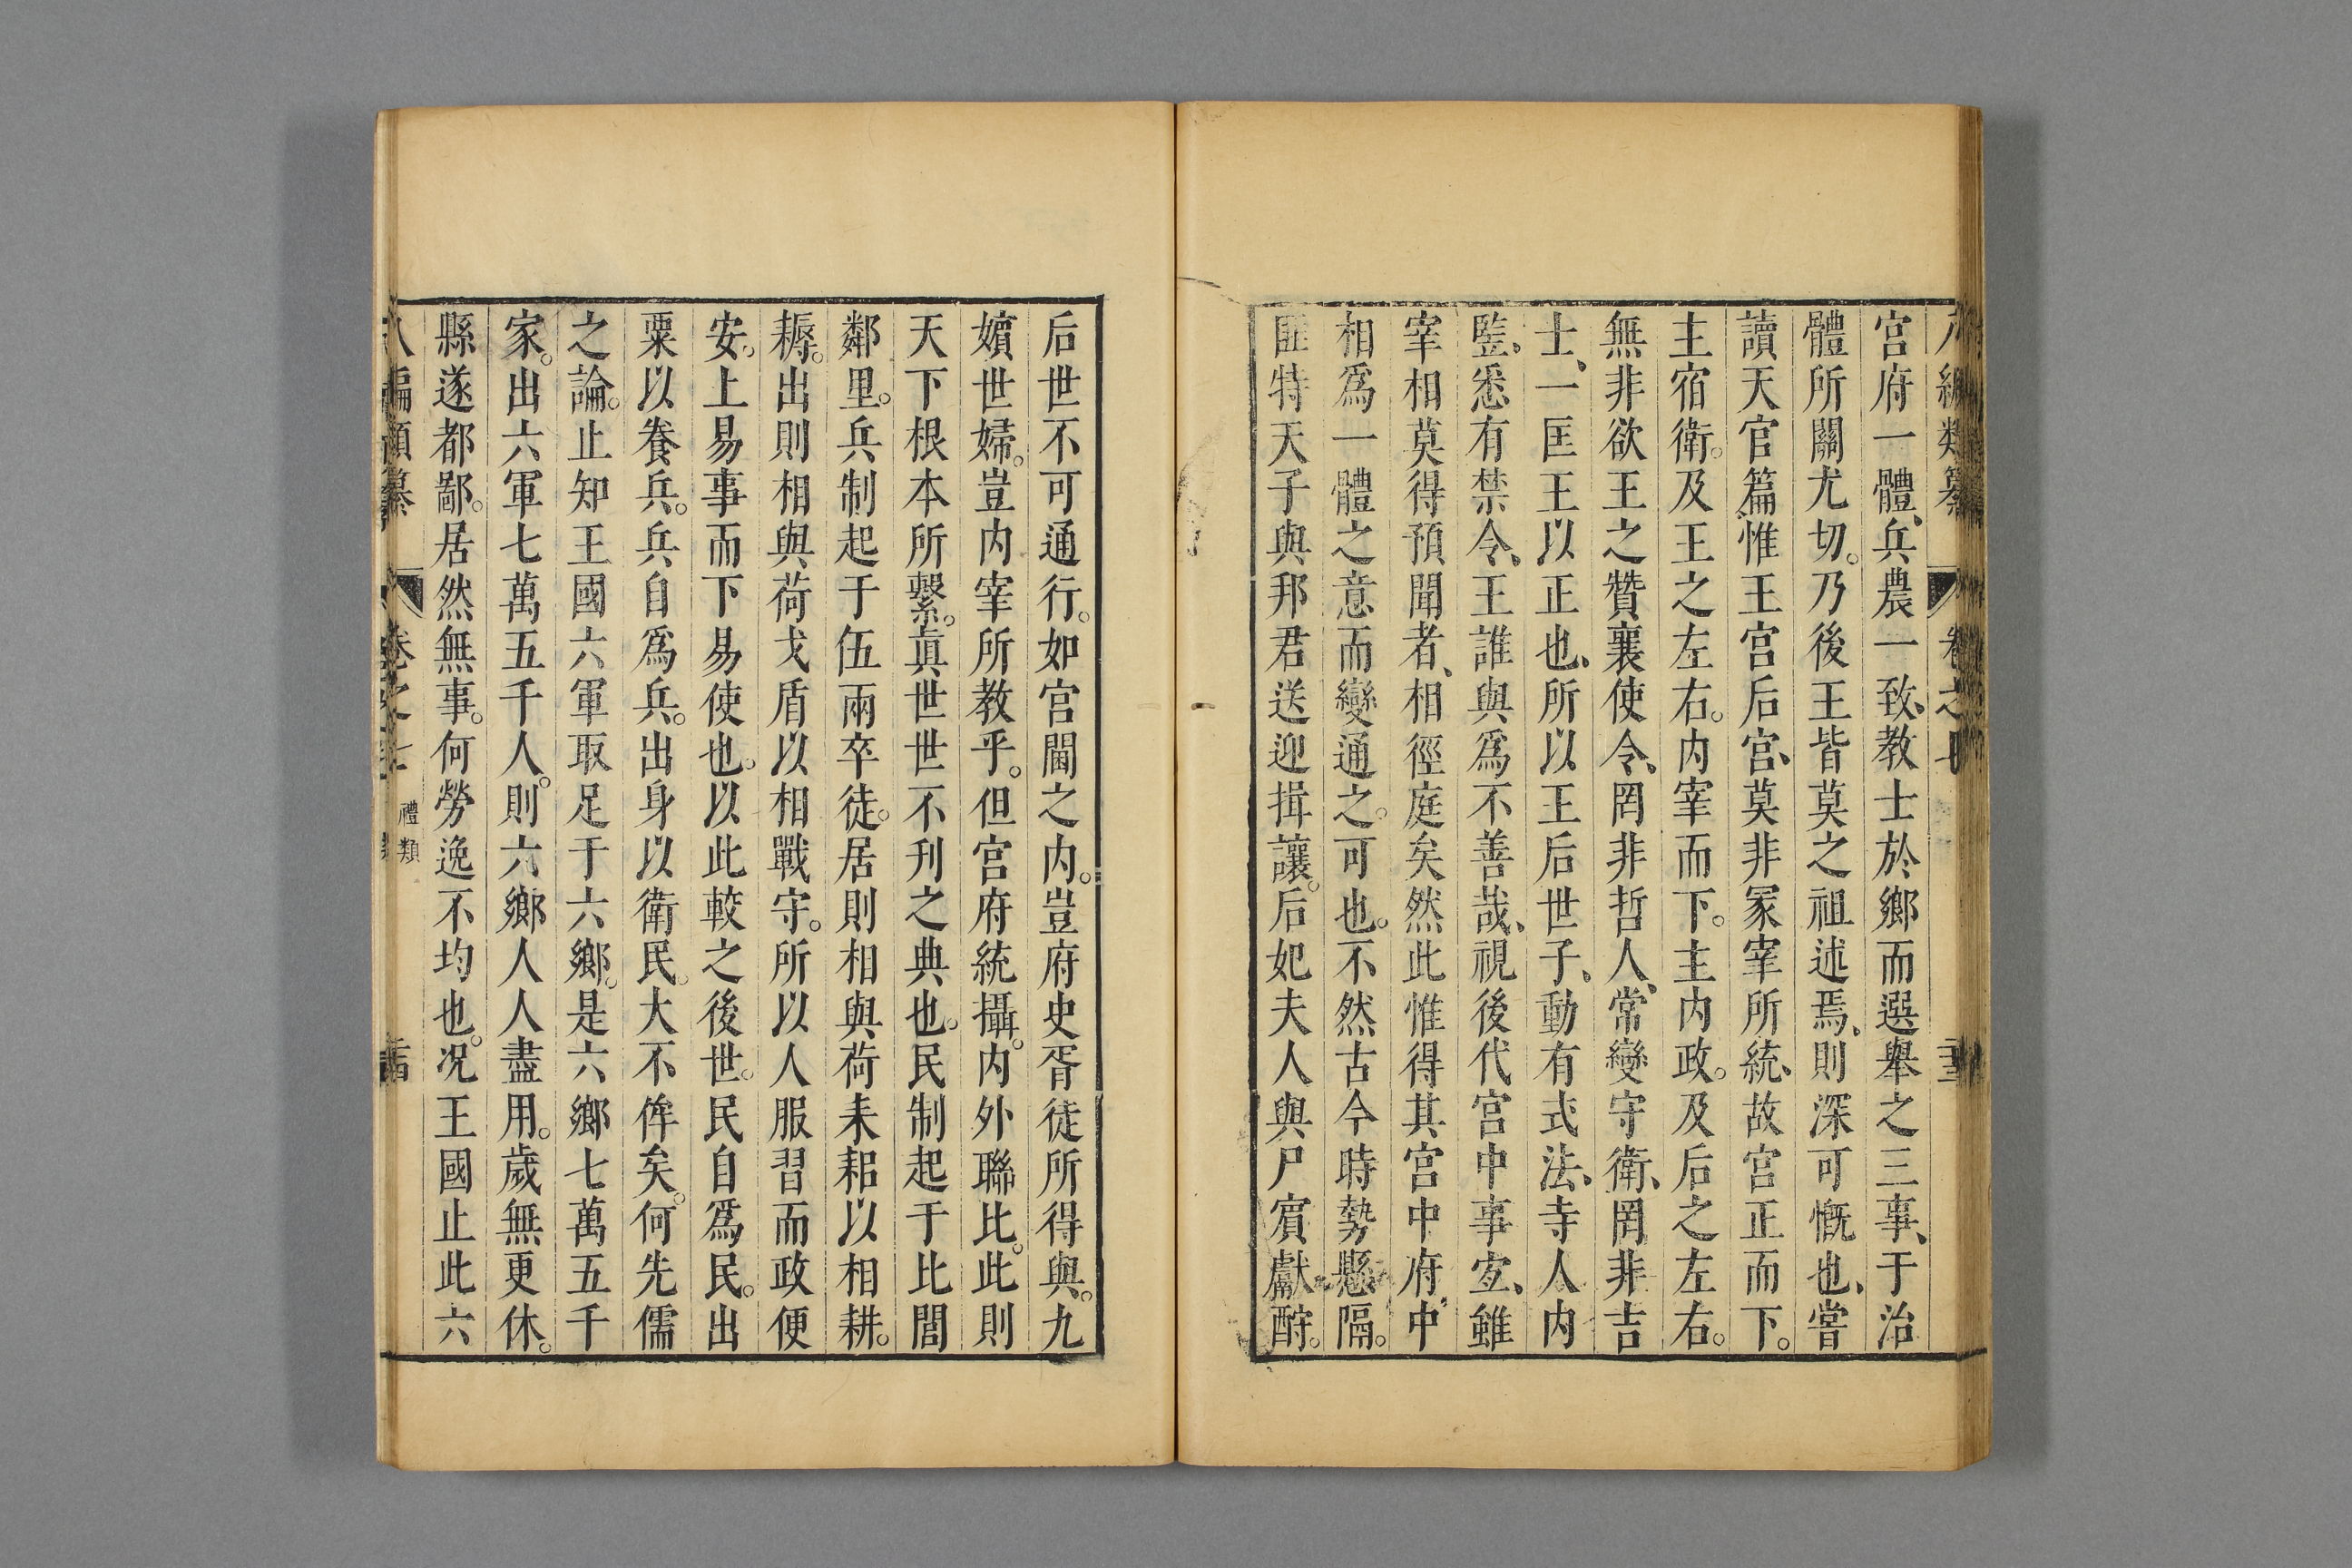 八編類纂 卷之七
宮府一體、兵農一致、教士於鄉而選舉之三事、于治
體所關尤切。乃後王皆莫之祖述焉、則深可慨也、嘗
讀天官篇、惟王宮后宮、莫非冢宰所統、故宮正而下。
主宿衛。及王之左右。内宰而下。主内政。及后之左右。
無非欲王之贊襄使令、罔非哲人、常變守衛、罔非吉
士、一匡王以正也、所以王后世子、動有式法、寺人内
豎、悉有禁令、王誰與爲不善哉、視後代宮中事宜、雖
宰相莫得預聞者、相徑庭矣然此惟得其宮中府中
相爲一體之意而變通之。可也。不然古今時勢懸隔。
匪特天子與邦君送迎揖讓。后妃夫人與尸賓獻酧。
后世不可通行。如宮閫之内。豈府史胥徒所得與。九
嬪世婦。豈内宰所教乎。但宮府統攝。内外聯比。此則
天下根本所繫。眞世世不刊之典也。民制起于比閭
鄰里。兵制起于伍兩卒徒。居則相與荷耒耜以相耕。
耨。出則相與荷戈盾以相戰守。所以人服習而政便
安。上易事而下易使也。以此較之後世。民自爲民。出
粟以養兵。兵自爲兵。出身以衛民。大不侔矣。何先儒
之論。止知王國六軍取足于六鄉。是六鄉七萬五千
家。出六軍七萬五千人。則六鄉人人盡用。歲無更休。
縣遂都鄙。居然無事。何勞逸不均也。况王國止此六
八編類纂 卷之七 禮類